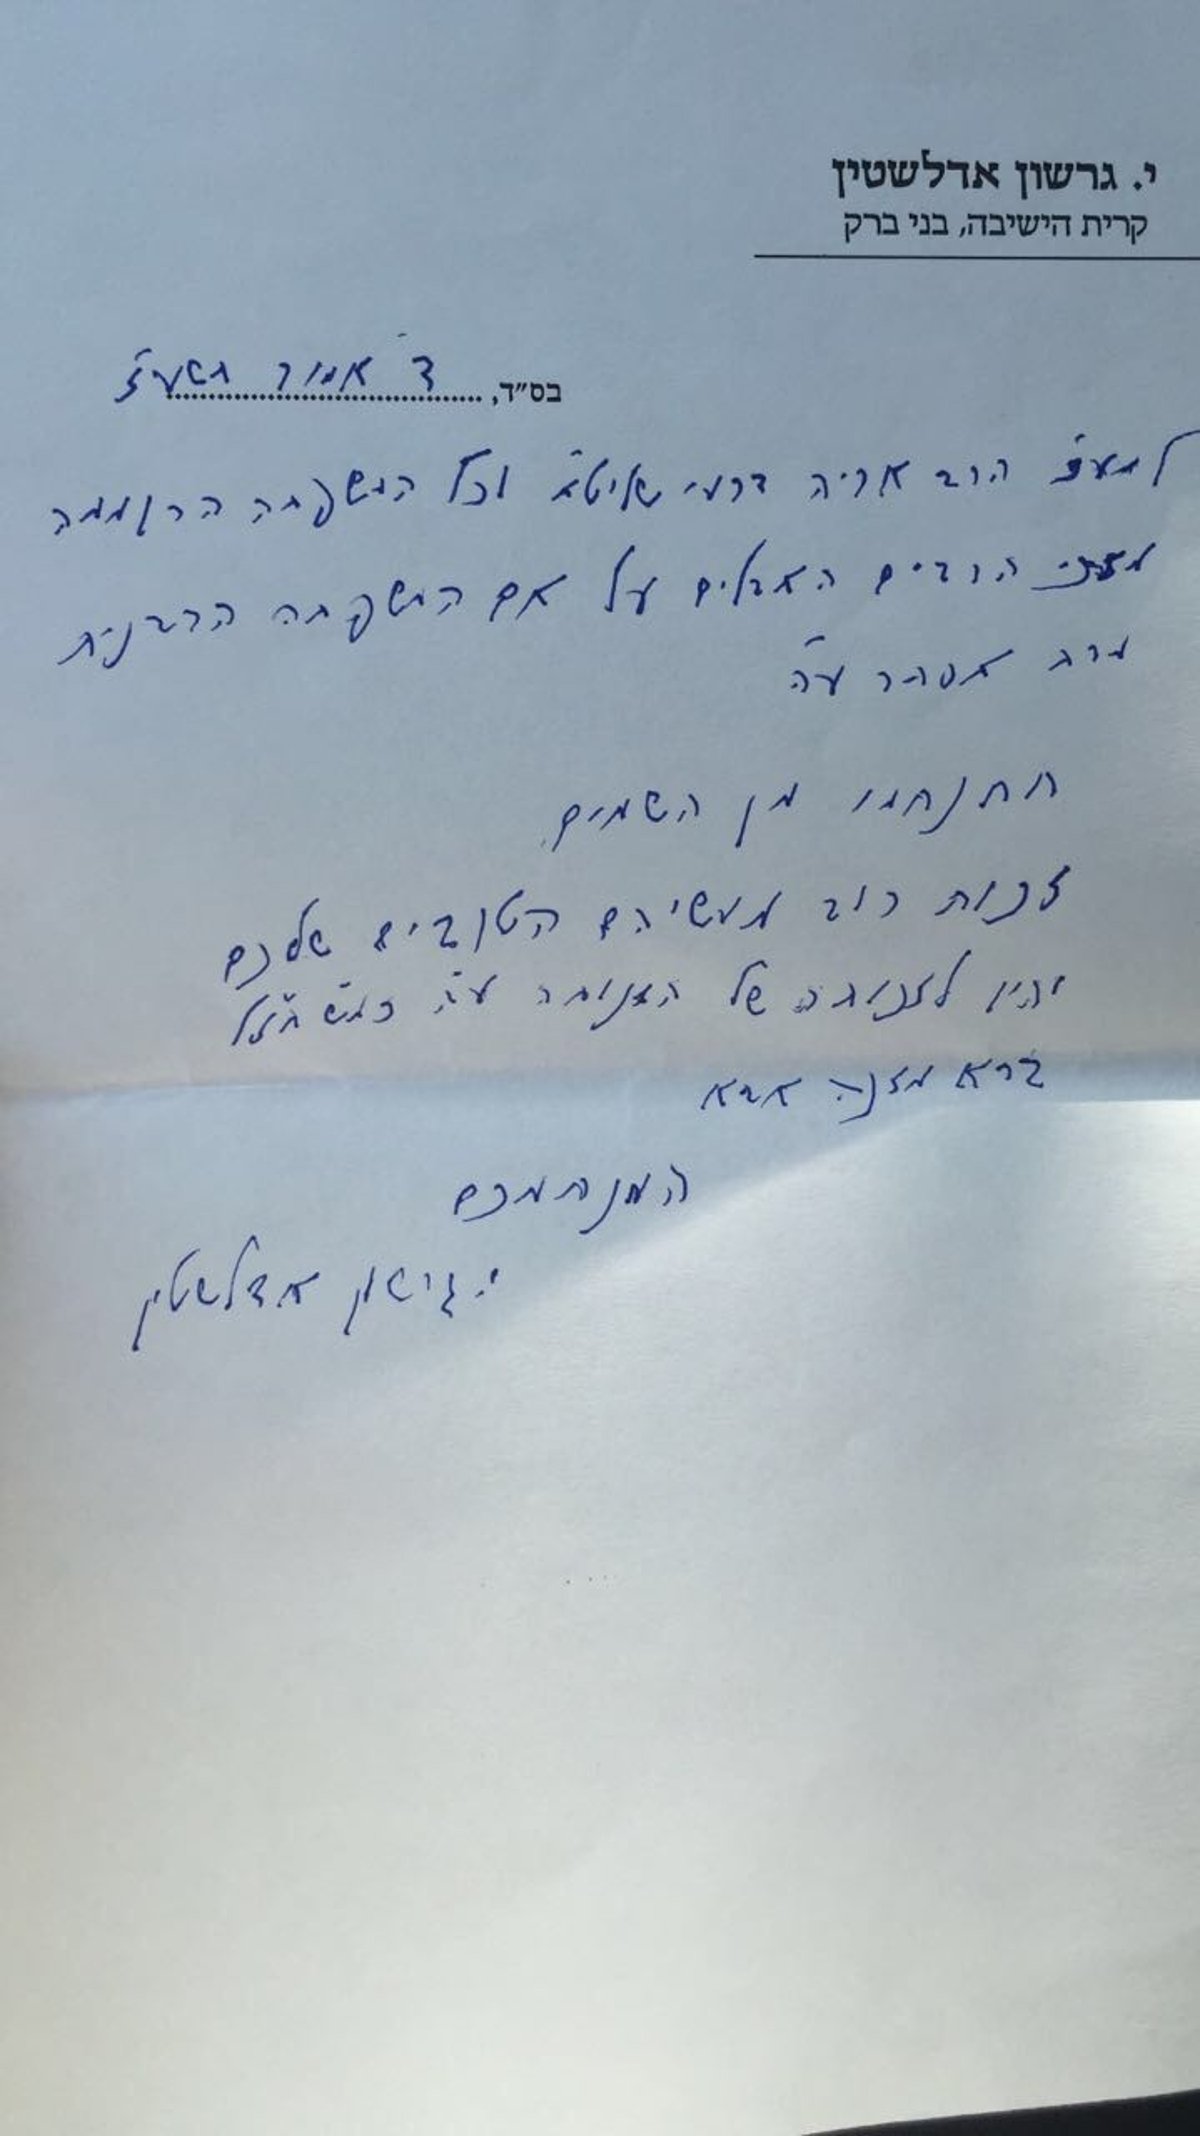 י. גרשון אדלשטין
קרית הישיבה, בני ברק
בס״ד, ד' אמור תשע"ז
למע"כ הרב אריה דרעי שליט"א וכל המשפחה הרוממה
מזכי הרבים האבלים על אם המשפחה הרבנית
מרת אסתר ע"ה
תתנחמו מן השמים,
זכות רוב מעשיהם הטובים שלכם
יהיו לזכותה של המנוחה ע"ה כמ"ש חז"ל
ברא מזכה אבא
המנחמכם
י. גרשון אדלשטין